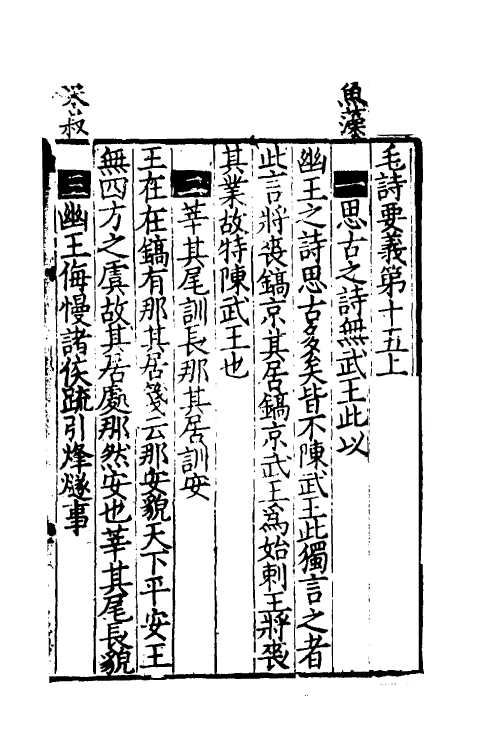 魚藻
毛詩要義第十五上
一思古之詩無武王此以
幽王之詩思古多矣皆不陳武王此獨言之者
此言將喪鎬京其居鎬京武王為始刺王將喪
其業故特陳武王也
二莘其尾訓長那其居訓安
王在在鎬有那其居箋云那安貌天下平安王
無四方之虞故其居處那然安也莘其尾長貌
采叔
三幽王侮慢諸侯疏引烽燧事